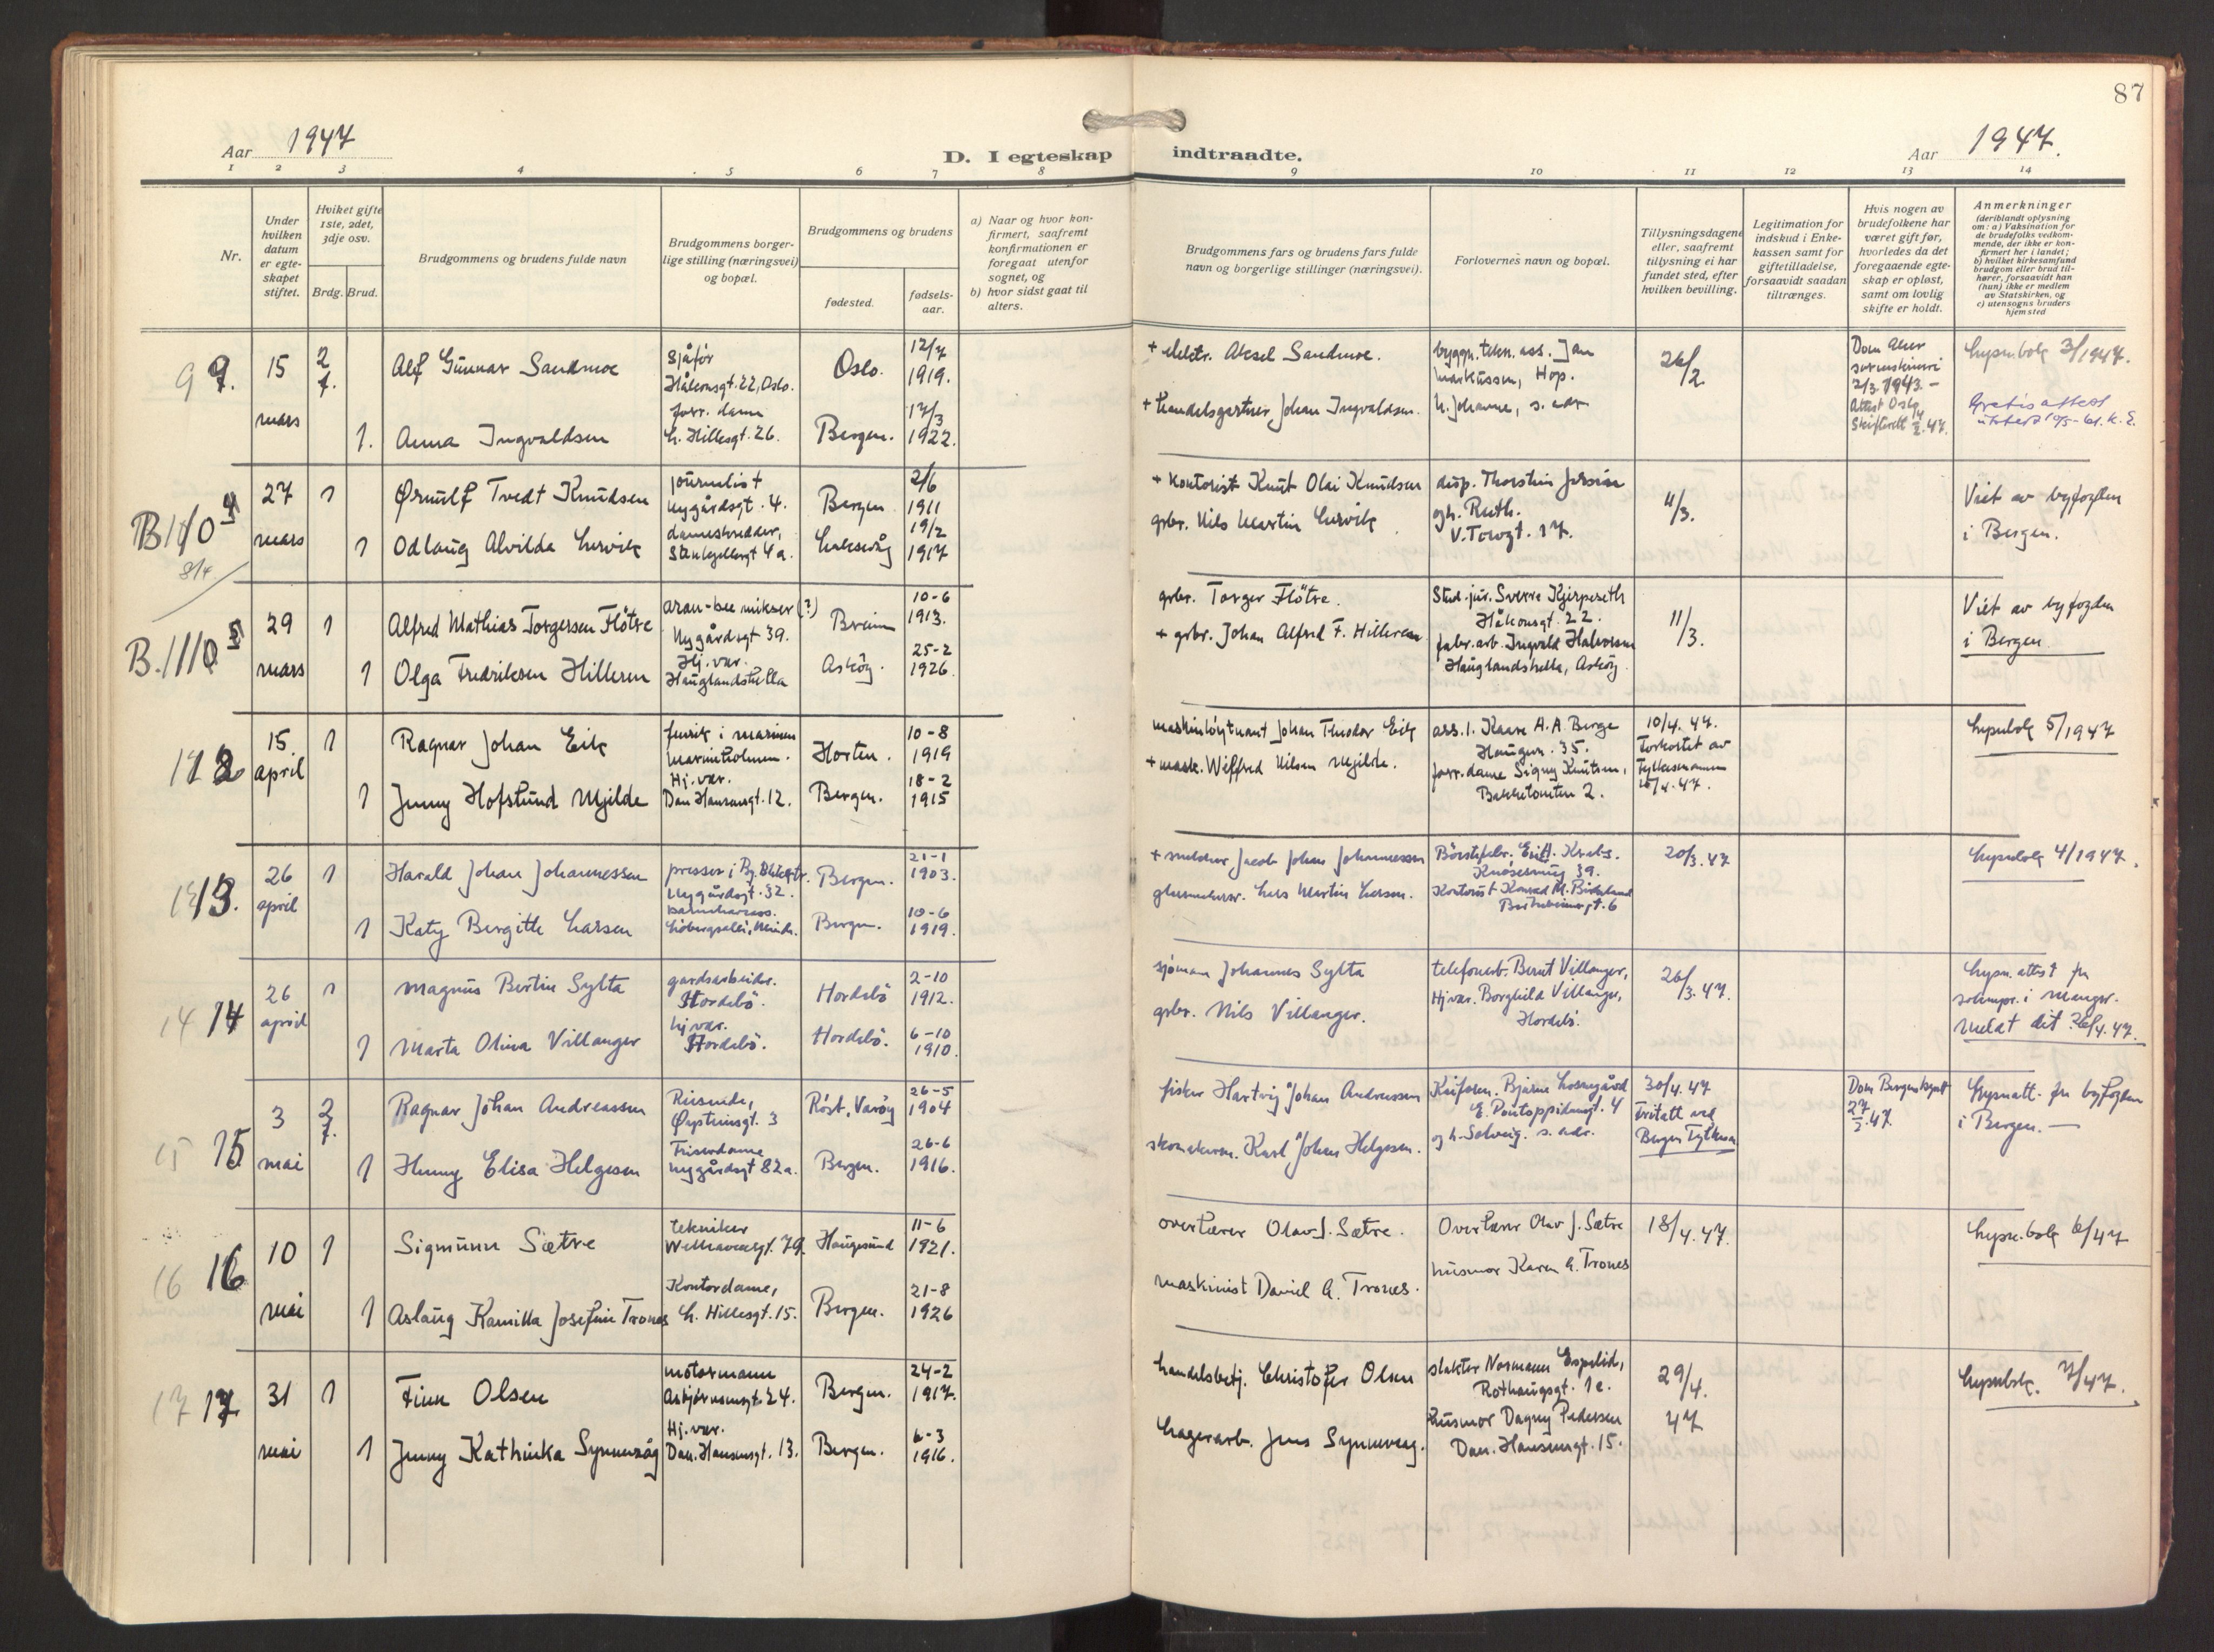 87
Aar 1947
D. I egteskap indtraadte.
Aar 1947.
1 2 3 4 5 6 7 8 9 10 11 12 13 14
Nr.
Under hvilken datum er egteskapet stiftet.
Hviket gifte 1ste, 2det, 3dje osv.
Brdg. Brud.
Brudgommens og brudens fulde navn
Brudgommens borgerlige stilling (næringsvei) og bopæl.
Brudgommens og brudens
fødested.
fødselsaar.
a) Naar og hvor konfirmert, saafremt konfirmationen er foregaat utenfor sognet, og
b) hvor sidst gaat til alters.
Brudgommens fars og brudens fars fulde navn og borgerlige stillinger (næringsvei).
Forlovernes navn og bopæl.
Tillysningsdagene eller, saafremt tillysning ei har fundet sted, efter hvilken bevilling.
Legitimation for indskud i Enkekassen samt for giftetilladelse, forsaavidt saadan tiltrænges.
Hvis nogen av brudefolkene har været gift før, hvorledes da det foregaaende egteskap er opløst, samt om lovlig skifte er holdt.
Anmerkninger
(deriblandt oplysning om: a) Vaksination for de brudefolks vedkommende, der ikke er konfirmert her i landet;
b) hvilket kirkesamfund brudgom eller brud tilhører, forsaavidt han (hun) ikke er medlem av Statskirken, og
c) utensogns bruders hjemsted
9 9. 15 mars 2 f. Alf Gunnar Sandmoe Sjåfør Håkonsgt. 22, Oslo. Oslo. 12/7 1919.
1. Anna Ingvaldsen forr. dame L. Hillesgt. 26. Bergen. 17/3 1922.
+ elektr. Aksel Sandmoe.
+ Handelsgartner Johan Ingvaldsen.
byggn. tekn. ass. Jan Markussen, Hop.
h. Johanne, s. adr.
26/2.
Dom Aker
2/3 1943. -
Attest Oslo
Skifterett
Lysn.bok 3/1947.
Gratis attest
27 mars 1 Ørnulf Tvedt Knudsen journalist Nygårdsgt. 4. Bergen 2/6 1911
1 Odlaug Alvilda Lervik dameskredder, Laksevåg 19/2 1917
+ kontorist Knut Olai Knudsen
gbr. Nils Martin Lervik
disp. Thorstein
og h. Ruth.
V. Torvgt. 17.
11/3.
Viet av byfogden
i Bergen.
8/4
29 mars 1 Alfred Mathias Torgersen Flötre (?) Nygårdsgt 39. Breim 10-6 1913.
1 Olga Fredriksen Hilleren Hj. vær. Hauglandshella Askøy. 25-2 1926.
gbr. Torger Flötre.
+ gbr. Johan Alfred F. Hilleren
Stud. jur. Sverre Kjerpeseth
Håkonsgt. 22.
fabr. arb. Ingvald Halvorsen
Hauglandshella, Askøy.
11/3.
Viet av byfogden
i Bergen.
12 15. april 1 Ragnar Johan Eik fenrik i marinen Marineholmen. Horten. 10-8 1919
1 Jenny Hofslund Mjelde Hj. vær. Dan. Hansensgt. 12. Bergen. 18-2 1915
maskinløytnant Johan Theodor Eik
+ mask. Wilfred Nilsen Mjelde.
ass. l. Kaare A. A. Berge
Haugen. 35.
forr. dame Signy Knutsen,
Bakketomten 2.
10/4. 47.
Forkortet av
Fylkesmannen
Lysnbok 5/1947
13. 26 april 1 Harald Johan Johannessen Nygårdsgt. 32. Bergen. 21-1 1903.
1 Katy Bergitte Larsen Bergen. 10-6 1919.
+ snekker Jacob Johan Johannessen
glassmester. Lars Martin Larsen.
20/3. 47
Lysnbok 4/1947.
14 14 26 april 1 Magnus Bertin Sylta gardsarbeider. Hordabö. Hordabö 2-10 1912.
1 Marta Olina Villanger hj vær. Hordabö. Hordabö. 6-10 1910.
sjömann Johannes Sylta
gbr. Nils Villanger.
telefonarb. Bernt Villanger,
Hj vær. Borghild Villanger,
Hordabö.
26/3. 47.
Lysn. attest fra
sokneprs. i Manger.
Meldt dit 26/4. 47.
15 15 3 mai 2 f. Ragnar Johan Andreassen Reisende, Øysteinsgt. 3 Röst, Varöy 26-5 1904
1 Henny Elisa Helgesen Friserdame Nygårdsgt 82a. Bergen. 26-6 1916.
fisker Hartvig Johan Andreassen
skomakerm. Karl Johan Helgesen.
E. Pontoppidansgt. 4
og h. Solveig. s. adr.
30/4. 47
Fritatt ved
Bergen Fylkesm
Lysnatt. fra byfogden
i Bergen. —
16 16 10 mai 1 Sigmunn Sætre tekniker Welhavensgt. 79. Haugesund 11-6 1921.
1 Aslaug Kamilla Josefine Trones Kontordame, L. Hillesgt. 15. Bergen. 21-8 1926
overlærer Olav J. Sætre.
maskinist Daniel A. Trones.
Overlærer Olav J. Sætre
husmor Karen A. Trones
18/4. 47.
Lysn. bok 6/47
17 17. 31 mai 1 Finn Olsen motormann Asbjørnsensgt. 24. Bergen. 24-2 1917.
1 Jenny Kathinka Synnevåg Hj. vær. Dan. Hansensgt. 13. Bergen. 6-3 1916.
handelsbetj. Christofer Olsen
lagerarb. Jens Synnevaag.
slakter Normann Espelid,
Rothaugsgt. 1c.
husmor Dagny Pedersen
Dan. Hansensgt. 15.
29/4. 47
Lysnbok. 7/47.